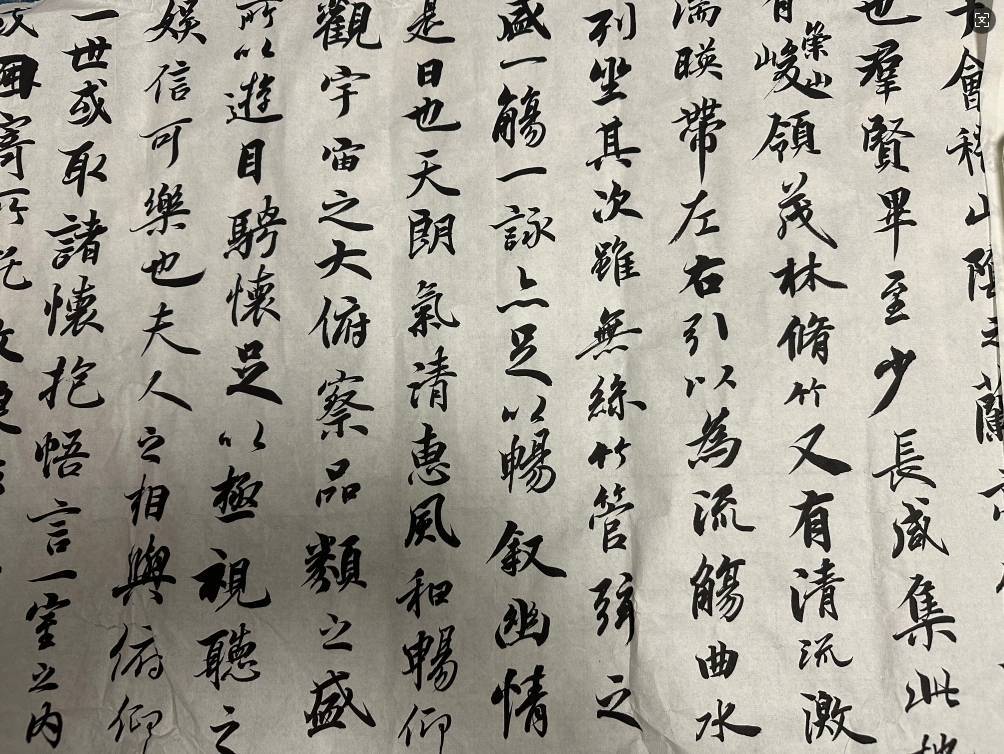 會稽山陰之蘭
也羣賢畢至少長咸集此地
有崇山峻領茂林脩竹又有清流激
湍暎帶左右引以為流觴曲水
列坐其次雖無絲竹管弦之
盛一觴一詠亦足以暢叙幽情
是日也天朗氣清惠風和暢仰
觀宇宙之大俯察品類之盛
所以遊目騁懷足以極視聽之
娛信可樂也夫人之相與俯仰
一世或取諸懷抱悟言一室之内
或因寄所託